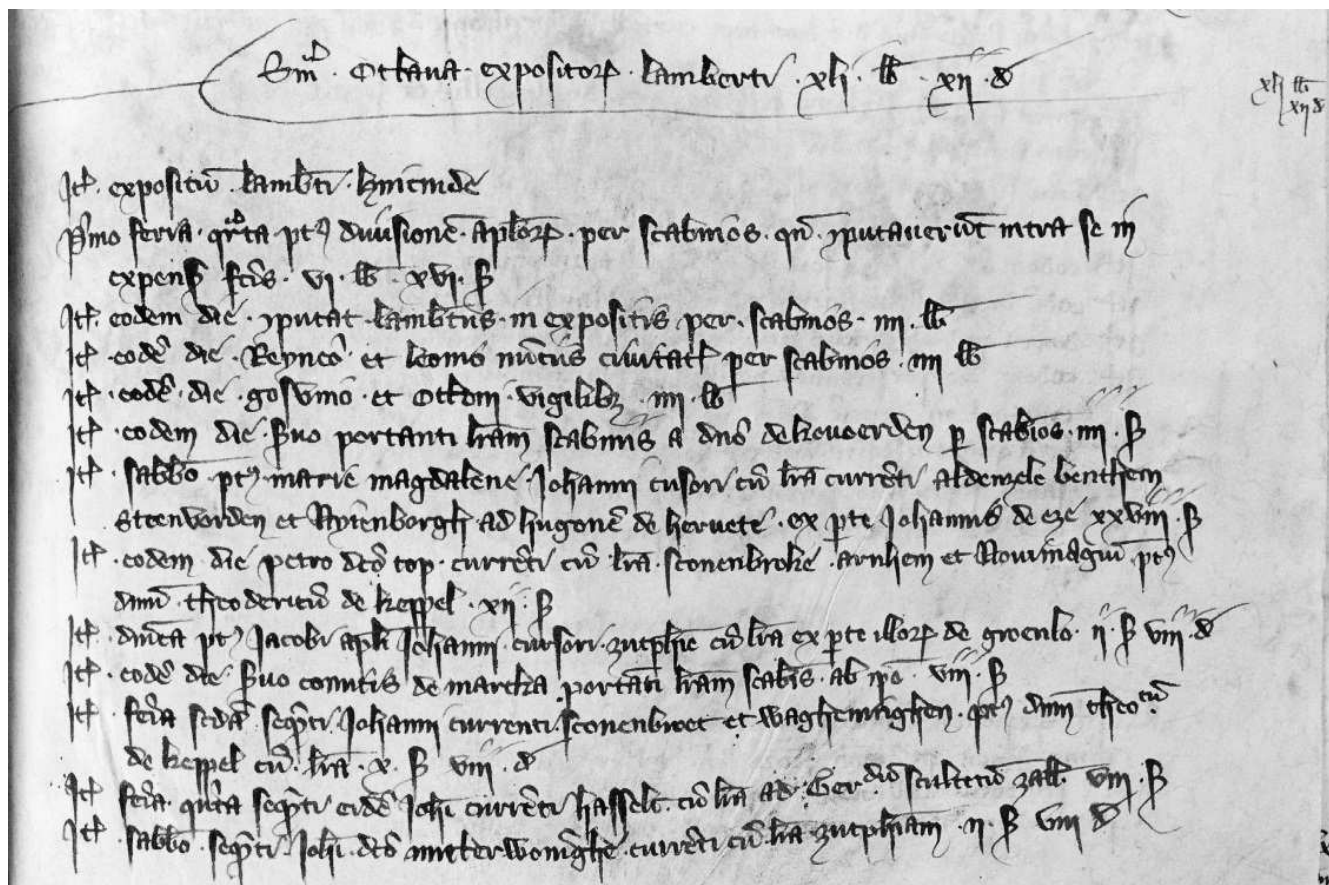 Sma. Octava. expositorum. Lamberti. xli. lb. xii. d
xli lb
xii d
Item. expositum. Lamberti. hinemde
Primo feria. quarta post divisionem. apostolorum. per scabinos. quando computaverunt intra se in
expensis factis. vi. lb. xvi. s
Item. eodem die. computat. Lambertus. in expositis per. scabinos. iiii. lb
Item. eodem die. Reynero. et Leoni nunciis civitatis per scabinos. iiii lb
Item. eodem. die. Goswino. et Ottoni. vigilibus. iiii. lb
Item. eodem die. servo portanti litteram scabinis a domino de Kovoerden per scabinos. iiii. s
Item. sabbato. post. Marie Magdalene. Johanni cursori cum littera currenti Aldenzele Benthem
Steenvorden et Nyienborgh. ad Hugonem de Hervete. ex parte Johannis de Eze xxviii. s
Item. eodem die Petro dicto Top. currenti cum littera. Sconenbroke. Arnhem et Novimagium. post
dominum. Theodericum de Keppel. xii. s
Item. dominica post Jacobi apostoli Johanni. cursori. Zutphaniam cum littera ex parte illorum de Groenlo. ii. s viii. d
Item. eodem die. servo comitis de Marcka portanti litteram scabinis. ab ipso. viii. s
Item. feria secunda sequenti. Johanni currenti. Sconenbroec et Wagheninghen. post dominum Theodericum
de Keppel cum. littera. x. s viii. d
Item feria. quarta sequenti eidem Johanni currenti Hasselt. cum littera ad. Gerardum scultetum Zallandie viii. s
Item. sabbato. sequenti. Johanni. dicto mitter Woninghe. currenti cum. littera. Zutphaniam. ii. s viii d